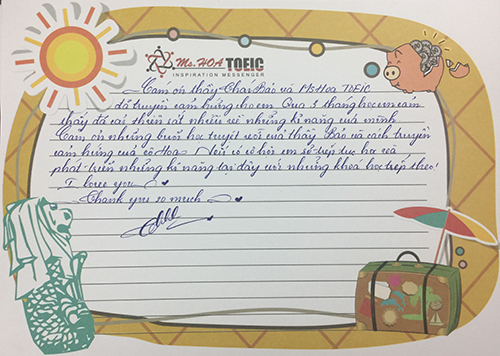 Ms.HOA TOEIC
INSPIRATION MESSENGER
Cảm ơn thầy Chai Bảo và Ms Hoa TOEIC
đã truyền cảm hứng cho em. Qua 3 tháng học em cảm
thấy đã cải thiện rất nhiều về những kĩ năng của mình
Cảm ơn những buổi học tuyệt vời của thầy Bảo và cách truyền
cảm hứng của cô Hoa. Nếu có cơ hội em sẽ tiếp tục học và
phát triển những kĩ năng tại đây với những khoá học tiếp theo!
I love you
Thank you so much